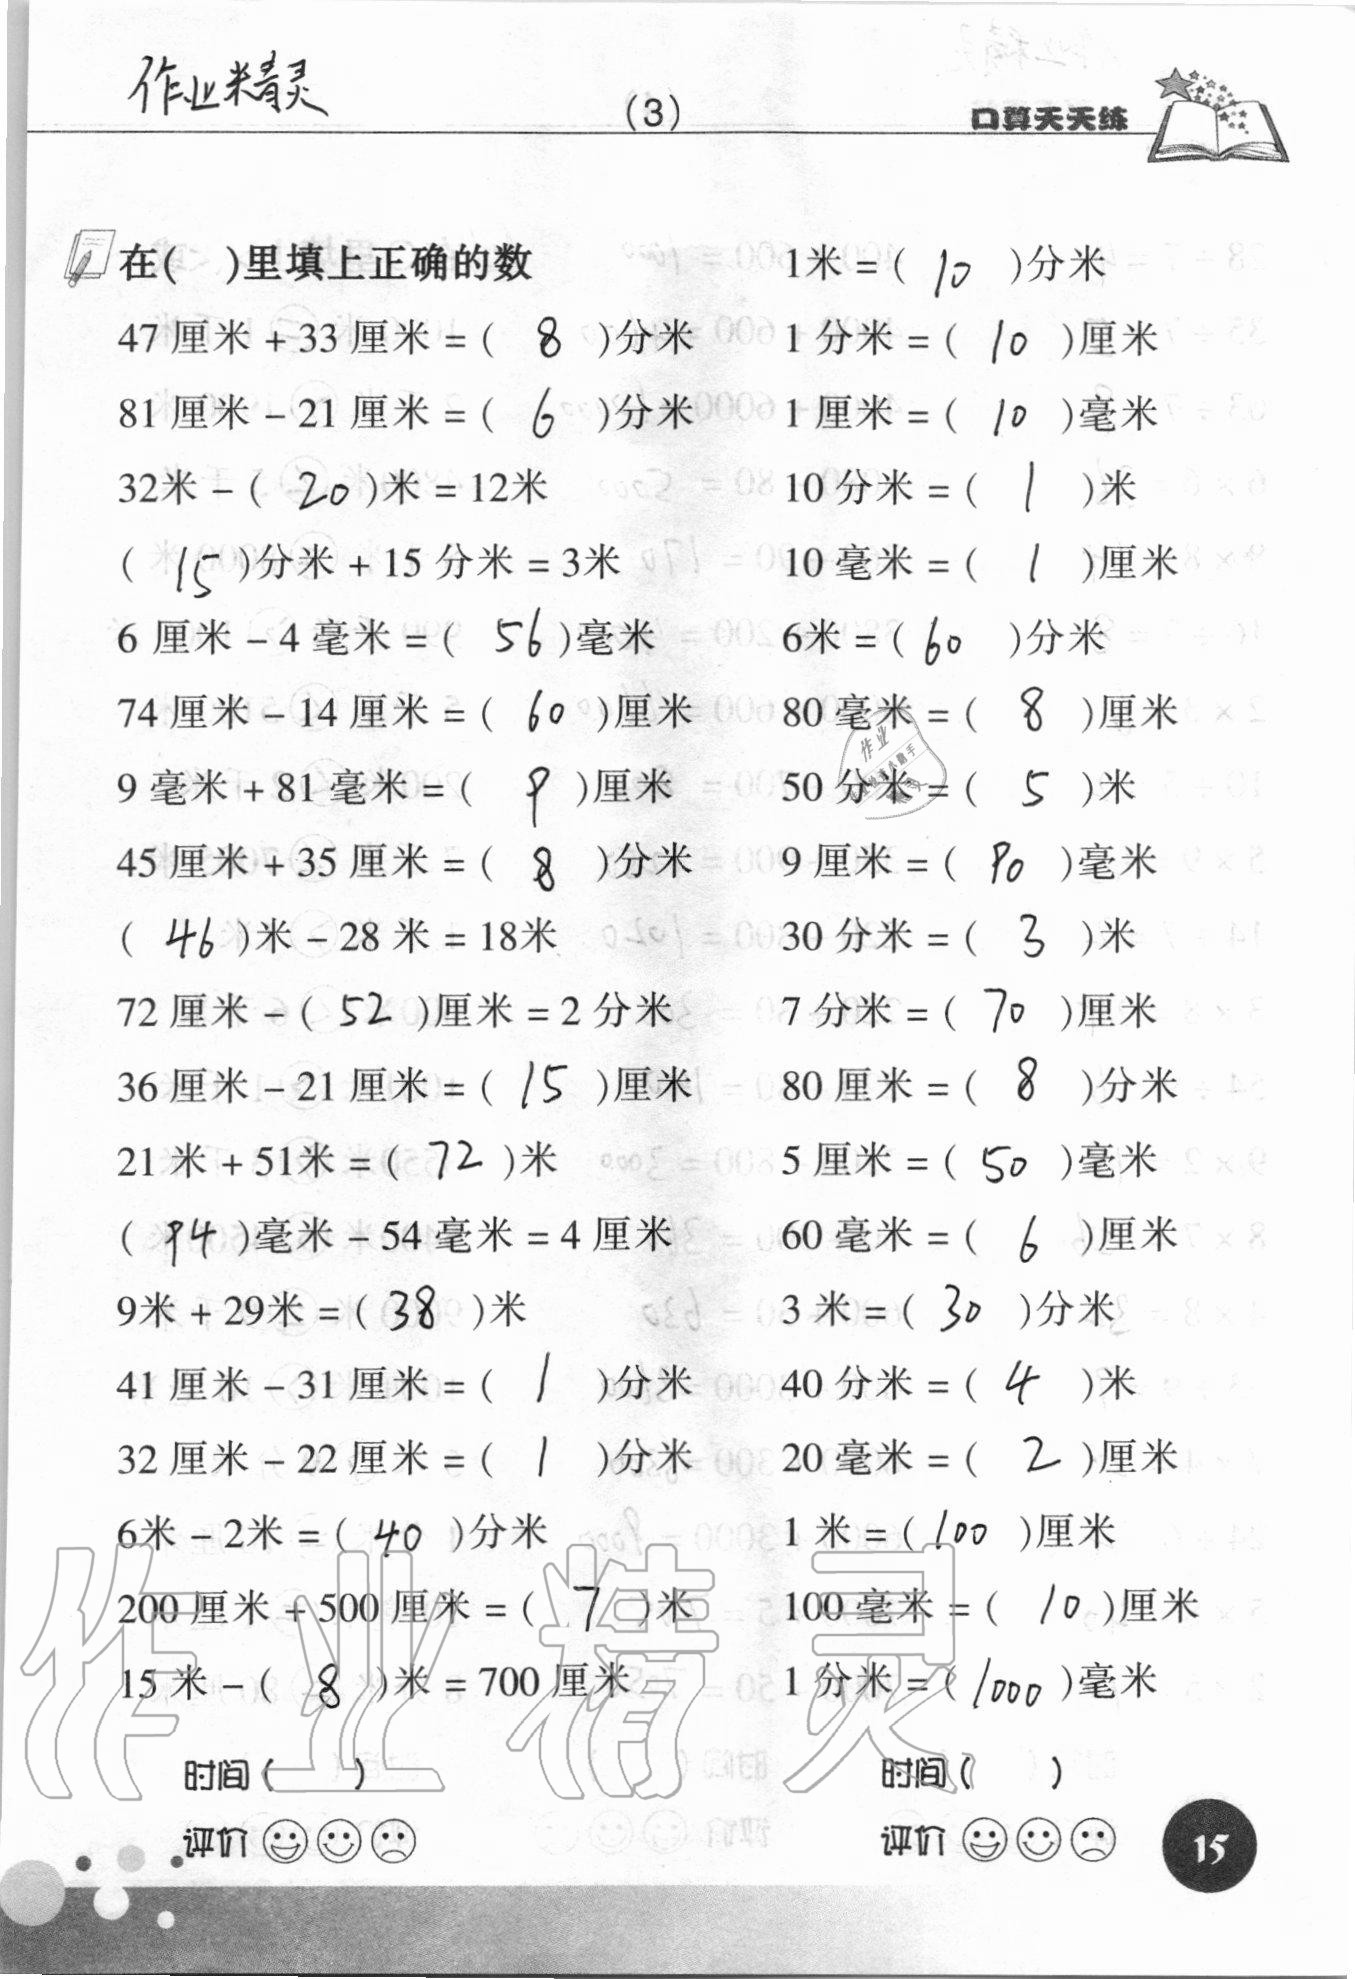 作业精灵
(3)
口算天天练
在( )里填上正确的数
47厘米+33厘米=( 8 )分米
81厘米-21厘米=( 6 )分米
32米-( 20 )米=12米
( 15 )分米+15分米=3米
6厘米-4毫米=( 56 )毫米
74厘米-14厘米=( 60 )厘米
9毫米+81毫米=( 9 )厘米
45厘米+35厘米=( 8 )分米
( 46 )米-28米=18米
72厘米-( 52 )厘米=2分米
36厘米-21厘米=( 15 )厘米
21米+51米=( 72 )米
( 94 )毫米-54毫米=4厘米
9米+29米=( 38 )米
41厘米-31厘米=( 1 )分米
32厘米-22厘米=( 1 )分米
6米-2米=( 40 )分米
200厘米+500厘米=( 7 )米
15米-( 8 )米=700厘米
时间( )
评价
1米=( 10 )分米
1分米=( 10 )厘米
1厘米=( 10 )毫米
10分米=( 1 )米
10毫米=( 1 )厘米
6米=( 60 )分米
80毫米=( 8 )厘米
50分米=( 5 )米
9厘米=( 90 )毫米
30分米=( 3 )米
7分米=( 70 )厘米
80厘米=( 8 )分米
5厘米=( 50 )毫米
60毫米=( 6 )厘米
3米=( 30 )分米
40分米=( 4 )米
20毫米=( 2 )厘米
1米=( 100 )厘米
100毫米=( 10 )厘米
1分米=( 1000 )毫米
时间( )
评价
15
作业精灵